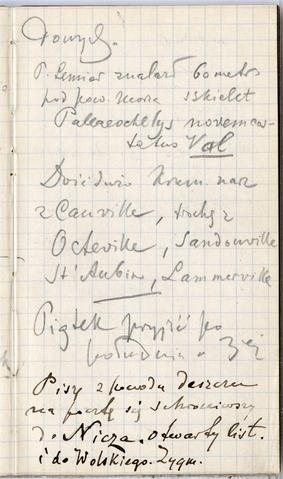 Pomysły.
P. Lemior znalazł 60 metr.
pod pow. morza iskielet
Palaeochelys novemcos-
tatus Val
Dość dużo krem. narz
z Cauville, trochę z
Octeville, Sandouville
St Aubin, Lammerville
Piątek przyjść po
południu o 3ej
Piszę z powodu deszczu
na pocztę się schroniwszy
do Nicza. otwarty list.
i do Wolskiego. Zygm.